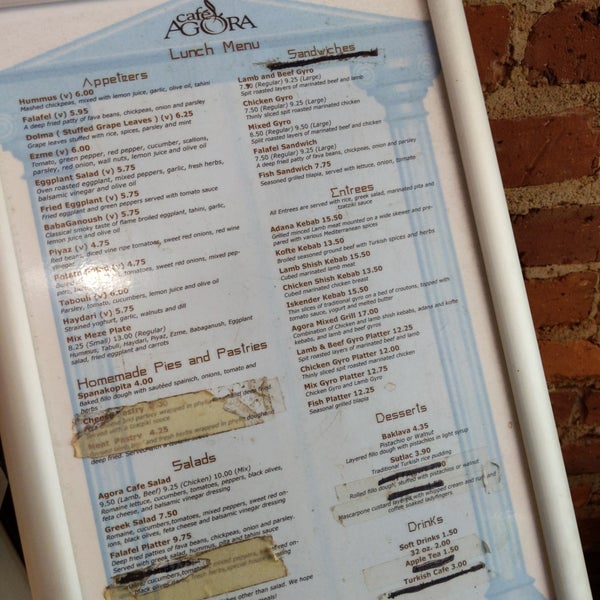 cafe
AGORA
Lunch Menu
Appetizers
Hummus (v) 6.00
Mashed chickpeas, mixed with lemon juice, garlic, olive oil, tahini
Falafel (v) 5.95
A deep fried patty of fava beans, chickpeas, onion and parsley
Dolma ( Stuffed Grape Leaves ) (v) 6.25
Grape leaves stuffed with rice, spices, parsley and mint
Ezme (v) 6.00
Tomato, green pepper, red pepper, cucumber, scallions,
parsley, red onion, wall nuts, lemon juice and olive oil
Eggplant Salad (v) 5.75
Oven roasted eggplant, mixed peppers, garlic, fresh herbs,
balsamic vinegar and olive oil
Fried Eggplant (v) 5.75
Fried eggplant and green peppers served with tomato sauce
BabaGanoush (v) 5.75
Classical smoky taste of flame broiled eggplant, tahini, garlic,
lemon juice and olive oil
Piyaz (v) 4.75
Red beans, diced vine ripe tomatoes, sweet red onions, red wine
vinegar
Potato Salad (v) 4.75
tomatoes, sweet red onions, mixed pep-
Tabouli (v) 6.00
Parsley, tomato, cucumbers, lemon juice and olive oil
Haydari (v) 5.75
Strained yoghurt, garlic, walnuts and dill
Mix Meze Plate
8.25 (Small) 13.00 (Regular)
Hummus, Tabuli, Haydari, Piyaz, Ezme, Babaganush, Eggplant
salad, fried eggplant and carrots
Homemade Pies and Pastries
Spanakopita 4.00
Baked fillo dough with sautéed spanich, onions, tomato and
herbs
Cheese Pastry
parsley wrapped in
Meat Pastry 4.25
and fresh herbs wrapped in phyllo dough
deep fried. Served
Salads
Agora Cafe Salad
9.50 (Lamb, Beef) 9.25 (Chicken) 10.00 (Mix)
Romaine lettuce, cucumbers, tomatoes, peppers, black olives,
feta cheese, and balsamic vinegar dressing
Greek Salad 7.50
Romaine, cucumbers,tomatoes, mixed peppers, sweet red on-
ions, black olives, feta cheese and balsamic vinegar dressing
Falafel Platter 9.75
Deep fried patties of fava beans, chickpeas, onion and parsley.
Served with greek salad, hummus, pita and tahini sauce
cucumbers,tomatoes, mixed peppers,
black olives
other than salad. We hope
Sandwiches
Lamb and Beef Gyro
7.50 (Regular) 9.25 (Large)
Spit roasted layers of marinated beef and lamb
Chicken Gyro
7.50 (Regular) 9.25 (Large)
Thinly sliced spit roasted marinated chicken
Mixed Gyro
8.50 (Regular) 9.50 (Large)
Spit roasted layers of marinated beef and chicken
Falafel Sandwich
7.50 (Regular) 9.25 (Large)
A deep fried patty of fava beans, chickpeas, onion and parsley
Fish Sandwich 7.75
Seasoned grilled tilapia, served with lettuce, onion, tomato
Entrees
All Entrees are served with rice, greek salad, marinated pita and
tzatziki sauce
Adana Kebab 15.50
Grilled minced Lamb meat mounted on a wide skewer and pre-
pared with various Mediterranean spices
Kofte Kebab 13.50
Broiled seasoned ground beef with Turkish spices and herbs
Lamb Shish Kebab 15.50
Cubed marinated lamb meat
Chicken Shish Kebab 13.50
Cubed marinated chicken breast
Iskender Kebab 15.50
Thin slices of traditional gyro on a bed of croutons, topped with
tomato sauce, yogurt and melted butter
Agora Mixed Grill 17.00
Combination of Chicken and lamb shish kebabs, adana and kofte
kebabs, and lamb and beef gyros
Lamb & Beef Gyro Platter 12.25
Spit roasted layers of marinated beef and lamb
Chicken Gyro Platter 12.25
Thinly sliced spit roasted marinated chicken
Mix Gyro Platter 12.75
Chicken Gyro and Lamb Gyro
Fish Platter 12.25
Seasonal grilled tilapia
Desserts
Baklava 4.35
Pistachio or Walnut
Layered fillo dough with pistachios in light syrup
Sutlac 3.90
Traditional Turkish rice pudding
Rolled fillo dough, stuffed with pistachios or walnut
Mascarpone custard layered with whipped cream and rum and
coffee soaked ladyfingers
Drinks
Soft Drinks 1.50
32 oz. 2.00
Apple Tea 1.50
Turkish Cafe 3.00